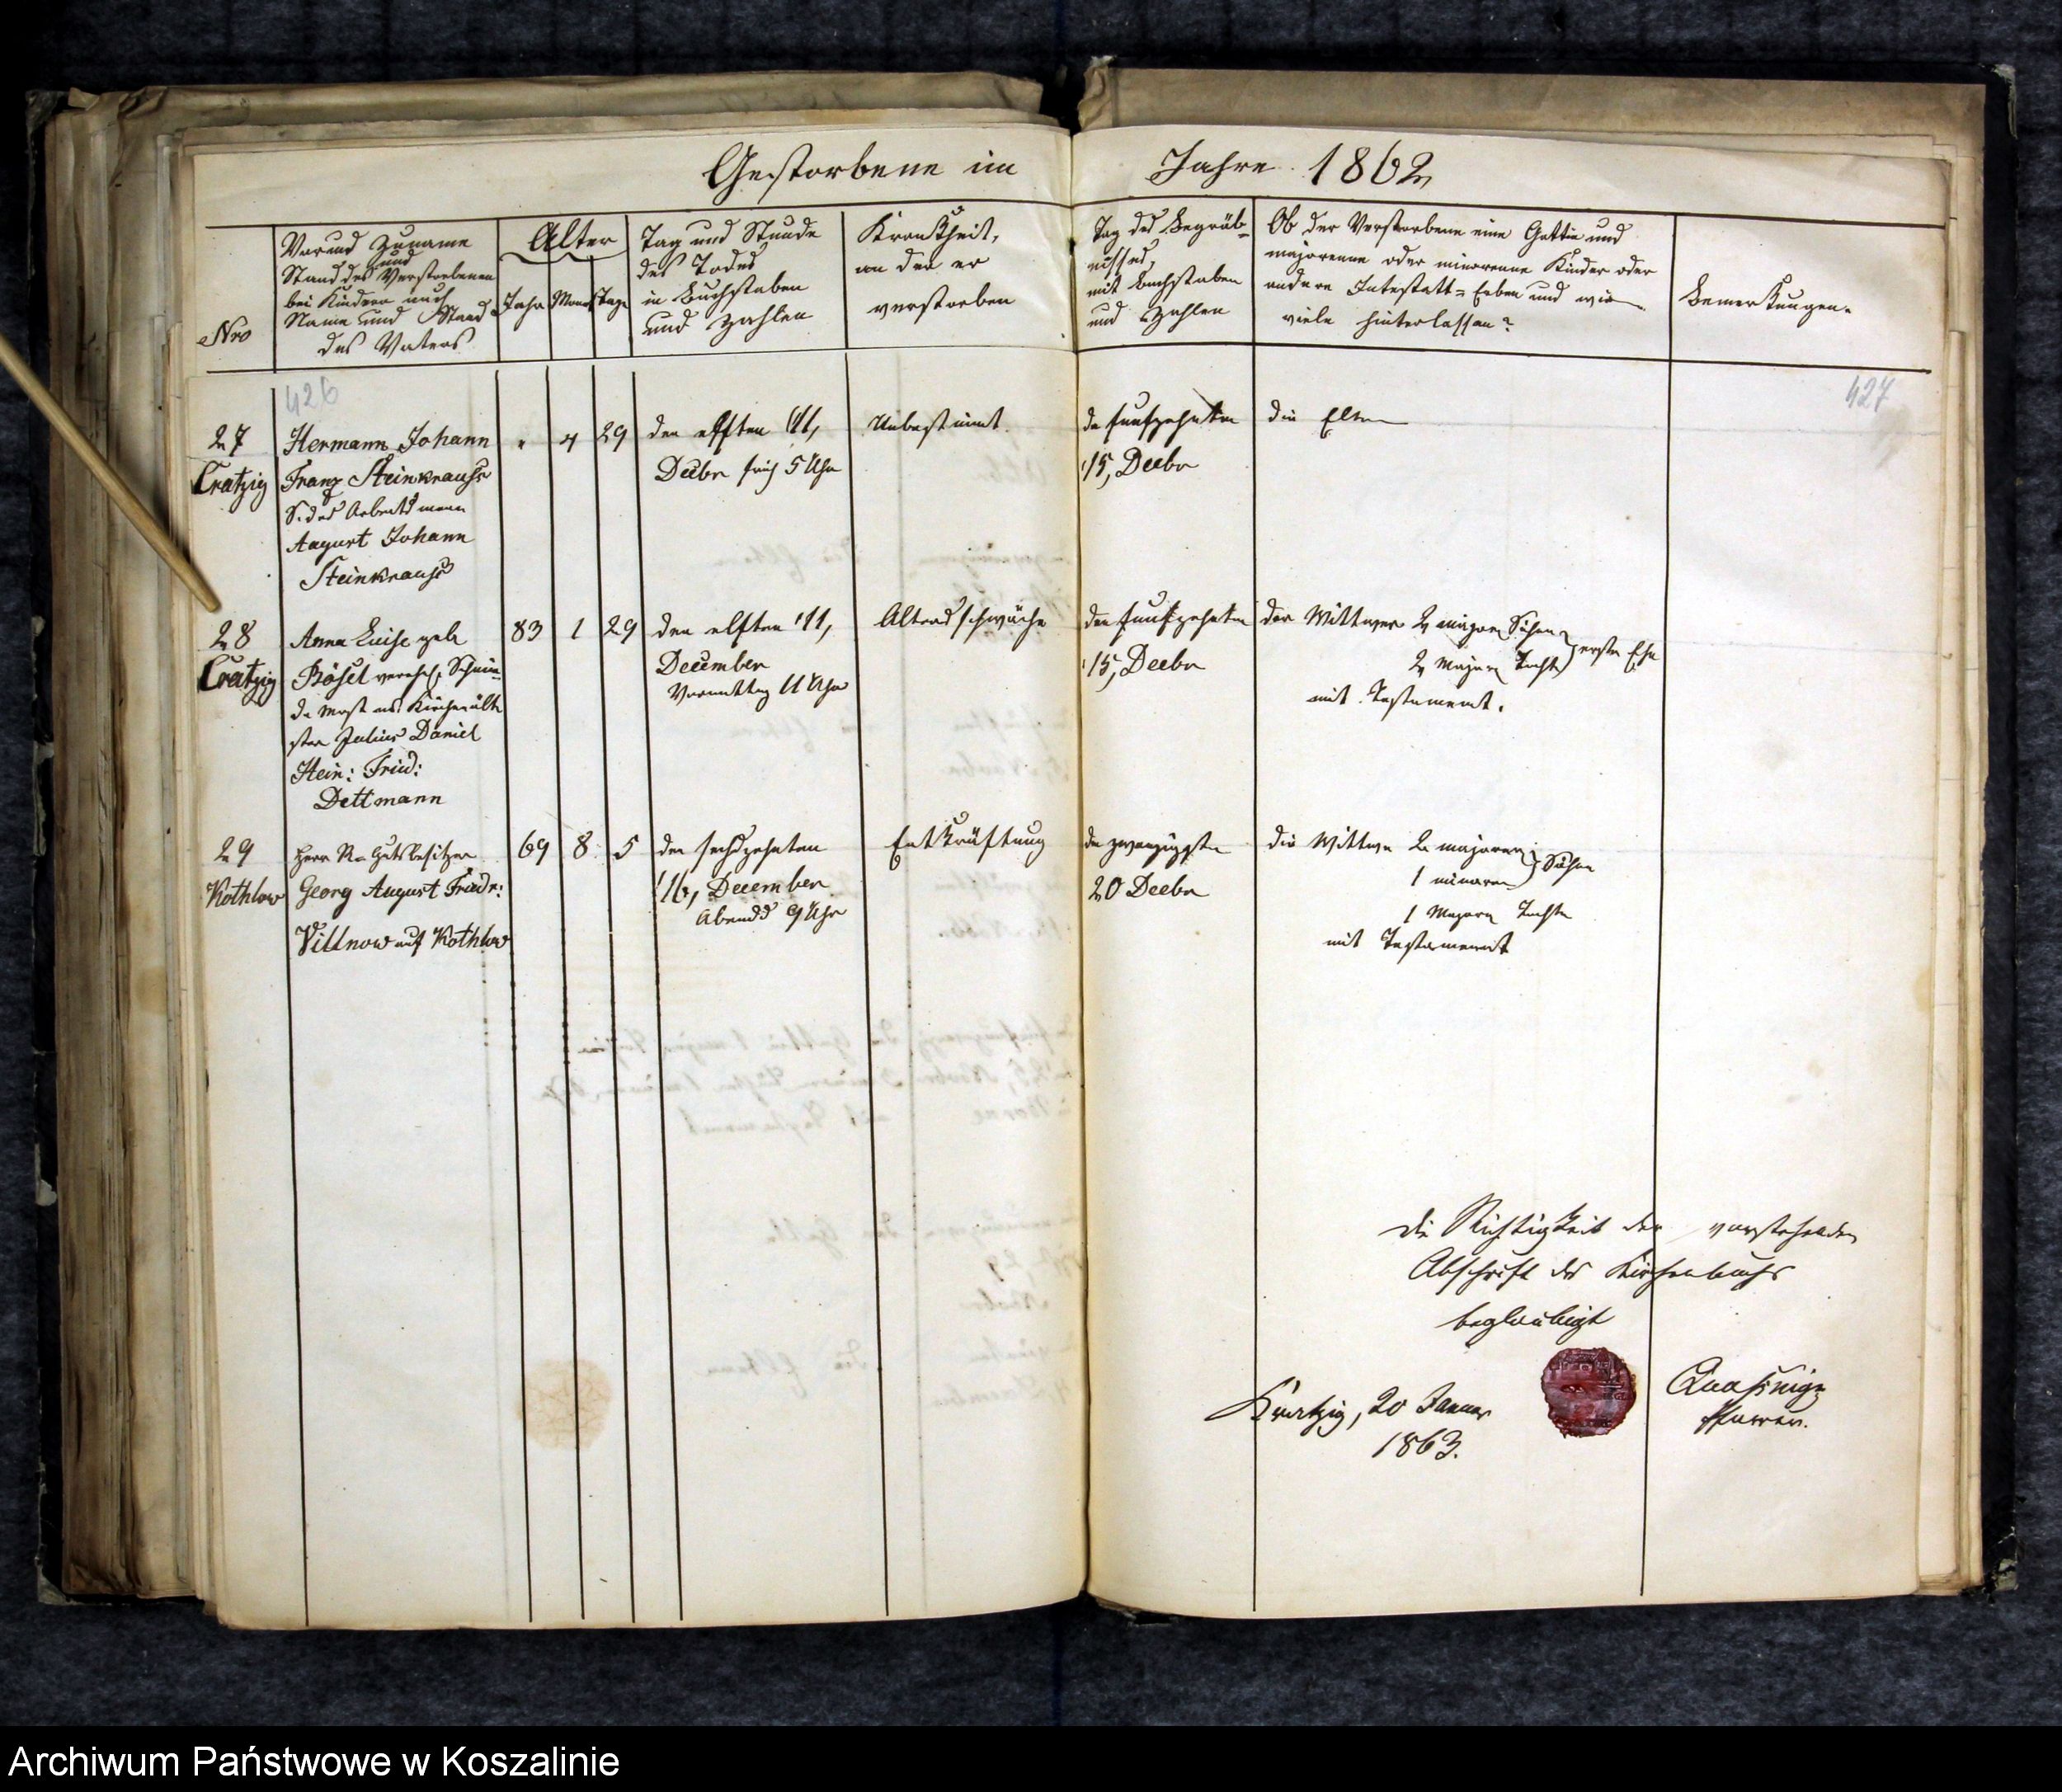 Gestorbene im Jahre 1862
Nro
Vor und Zuname
und
Stand des Verstorbenen
bei Kindern auch
Name und Stand
des Vaters
Alter
Jahr Monat Tage
Tag und Stunde
des Todes
in Buchstaben
und Zahlen
Krankheit,
an der er
verstorben
Tag des Begräb-
nisses,
mit Buchstaben
und Zahlen
Ob der Verstorbene eine Gattin und
majorenne oder minorenne Kinder oder
andere Intestatt-Erben und wie
viele hinterlassen?
Bemerkungen.
426
427
27
Cratzig
Hermann Johann
Franz Steinkrauss
S. des Arbeitsmann
August Johann
Steinkrauss
" 4 29
den elften 11,
Decbr früh 5 Uhr
Unbestimmt.
den funfzehnten
15, Decbr
die Eltern
28
Cratzig
Anna Luise geb.
Bösel verehel.
Kirchenält
ster Julius Daniel
Hein: Fried:
Dettmann
83 1 29
den elften 11,
December
Vormittag 11 Uhr
Altersschwäche
den funfzehnten
15, Decbr
der Wittwer 2 major Söhne
2 major Tocht erster Ehe
mit Testament.
29
Kothlow
Herr R. Gutsbesitzer
Georg August Friedr:
Villnow auf Kothlow
69 8 5
den sechszehnten
16, December
Abends 9 Uhr
Entkräftung
den zwanzigsten
20 Decbr
die Wittwe 2 majoren
1 minoren Söhne
1 Majorn Tochter
mit Testament
Die Richtigkeit der vorstehenden
Abschrift des Kirchenbuchs
beglaubigt
Kratzig, 20 Januar
1863.
Pfarrer.
Archiwum Państwowe w Koszalinie